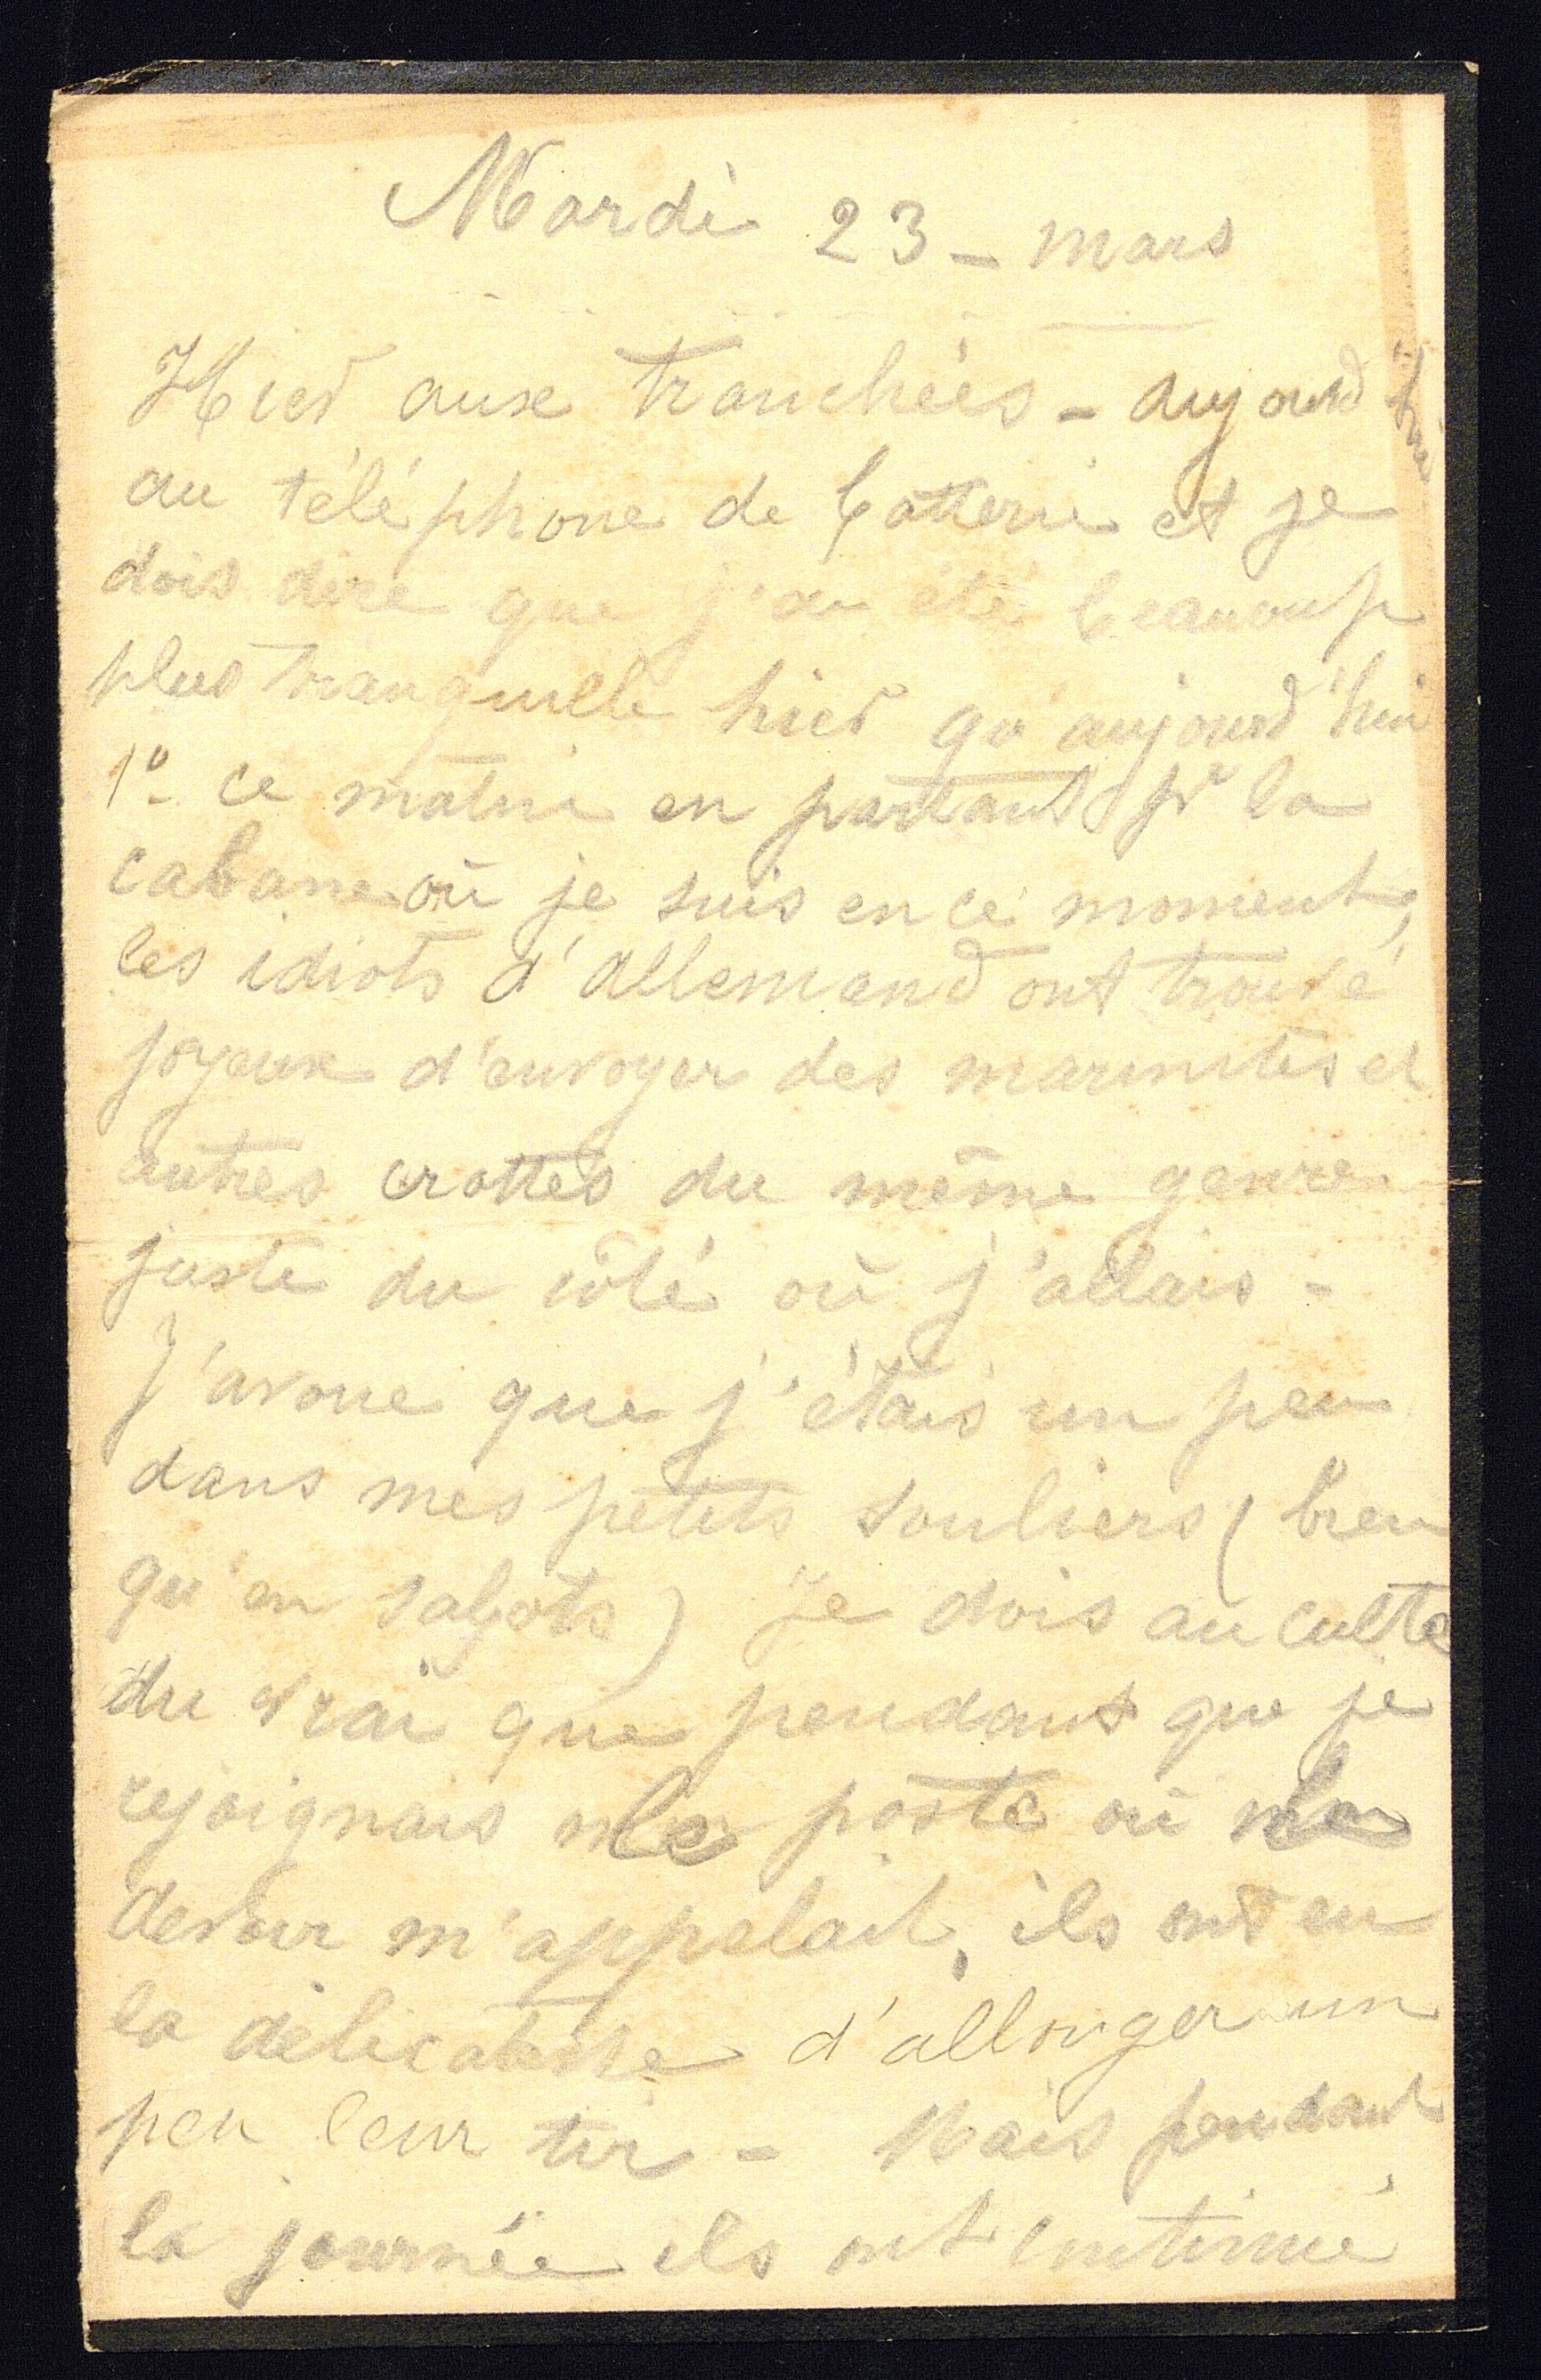 Mardi 23 - mars
Hier aux tranchées - aujourd'hui
au téléphone de batterie et je
dois dire que j'ai été beaucoup
plus tranquille hier qu'aujourd'hui
1º- ce matin en partant pr la
cabane où je suis en ce moment,
les idiots d'allemand ont trouvé
joyeux d'envoyer des marmites et
autres crottes du même genre
juste du côté où j'allais -
J'avoue que j'étais un peu
dans mes petits souliers (bien
qu'en sabots) Je dois au culte
du vrai que pendant que je
rejoignais le poste où le
devoir m'appelait, ils ont eu
la délicatesse d'allonger un
peu leur tir - Mais pendant
la journée ils ont continué